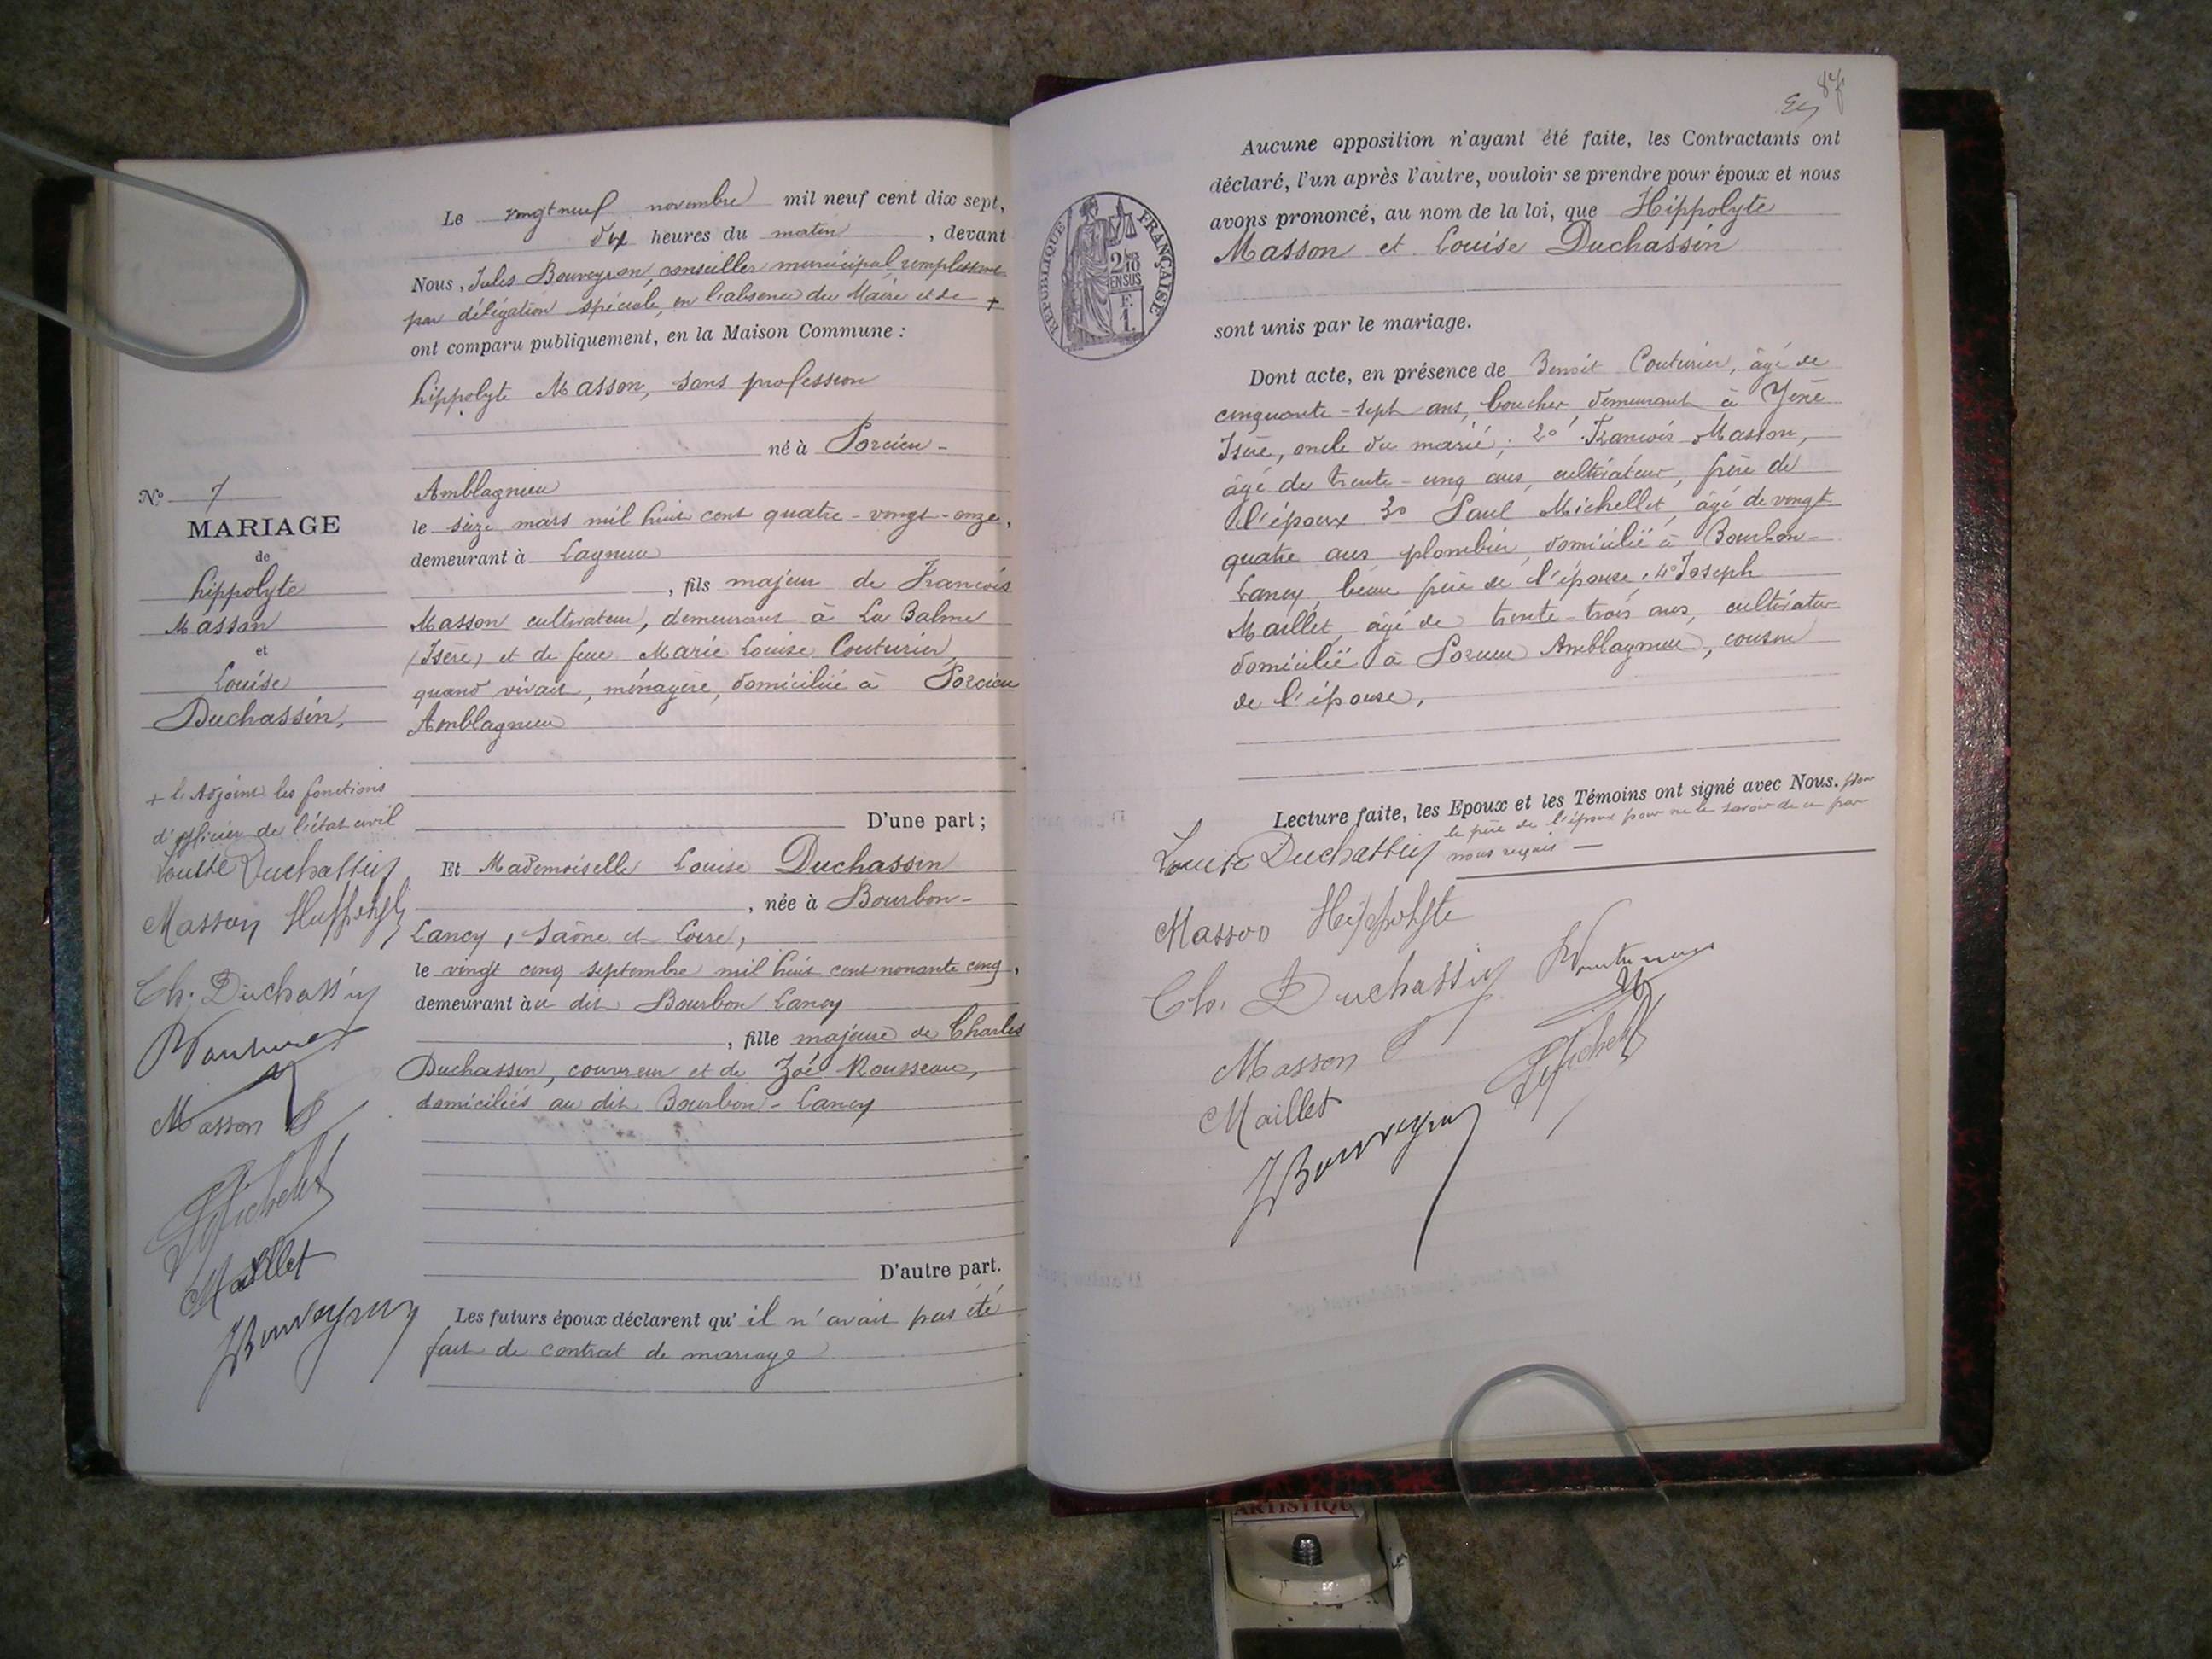 Le vingt neuf novembre mil neuf cent dix sept,
dix heures du matin, devant
Nous, Jules Bouveyron, conseiller municipal remplissant
par délégation spéciale, en l'absence du Maire et de +
ont comparu publiquement, en la Maison Commune :
hippolyte Masson, sans profession
né à Porcieu-
Amblagnieu
le seize mars mil huit cent quatre-vingt-onze,
demeurant à Lagnieu
, fils majeur de Francois
Masson cultivateur, demeurant à La Balme
(Isère) et de feue Marie Louise Couturier,
quand vivait, ménagère, domiciliée à Porcieu
Amblagnieu
D'une part ;
Et Mademoiselle Louise Duchassin
, née à Bourbon-
Lancy, Saône et Loire,
le vingt cinq septembre mil huit cent nonante cinq,
demeurant à au dit Bourbon Lancy
, fille majeure de Charles
Duchassin, couvreur et de Zoé Rousseau,
domiciliés au dit Bourbon-Lancy
D'autre part.
Les futurs époux déclarent qu'il n'avait pas été
fait de contrat de mariage
No 7
MARIAGE
de
hippolyte
Masson
et
Louise
Duchassin,
+ l'Adjoint les fonctions
d'officier de l'état civil
Louise Duchassin
Masson Hippolyte
Ch. Duchassin
Masson
Michelet
Maillet
JBouveyron
87
RÉPUBLIQUE FRANÇAISE
2/10
EN SUS
F.
1.
Aucune opposition n'ayant été faite, les Contractants ont
déclaré, l'un après l'autre, vouloir se prendre pour époux et nous
avons prononcé, au nom de la loi, que Hippolyte
Masson et Louise Duchassin
sont unis par le mariage.
Dont acte, en présence de Benoit Couturier, âgé de
cinquante-sept ans, boucher demeurant à
Isère, oncle du marié; 2o Francois Masson,
âgé de trente-cinq ans, cultivateur, frère de
l'époux 3o Paul Michellet, âgé de vingt
quatre ans plombier, domicilié à Bourbon-
Lancy, beau frère de l'épouse, 4o Joseph
Maillet, âgé de trente-trois ans, cultivateur
domicilié à Porcieu Amblagnieu, cousin
de l'épouse,
Lecture faite, les Epoux et les Témoins ont signé avec Nous. non
le père de l'époux pour ne le savoir de ce par
nous requis —
Louise Duchassin
Masson Hippolyte
Ch. Duchassin
Masson
Michelet
Maillet
JBouveyron
ARTISTIQU